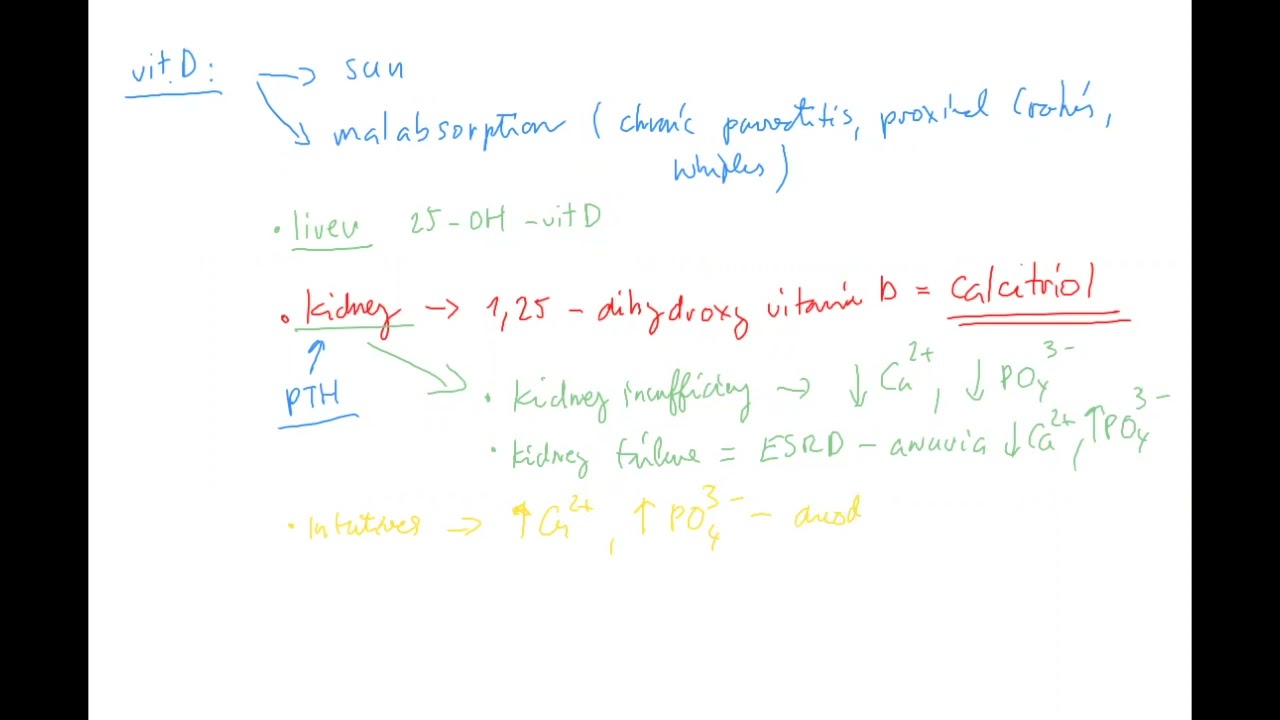 vit. D: → sun
malabsorption (chronic pancreatitis, proximal Crohn's,
Whiples)
• liver 25-OH-vit D
• kidney → 1,25-dihydroxy vitamin D = calcitriol
PTH
• kidney insufficiency → ↓ Ca²⁺, ↓ PO₄³⁻
• kidney failure = ESRD - anuria ↓ Ca²⁺, ↑ PO₄³⁻
• → ↑ Ca²⁺, ↑ PO₄³⁻ -